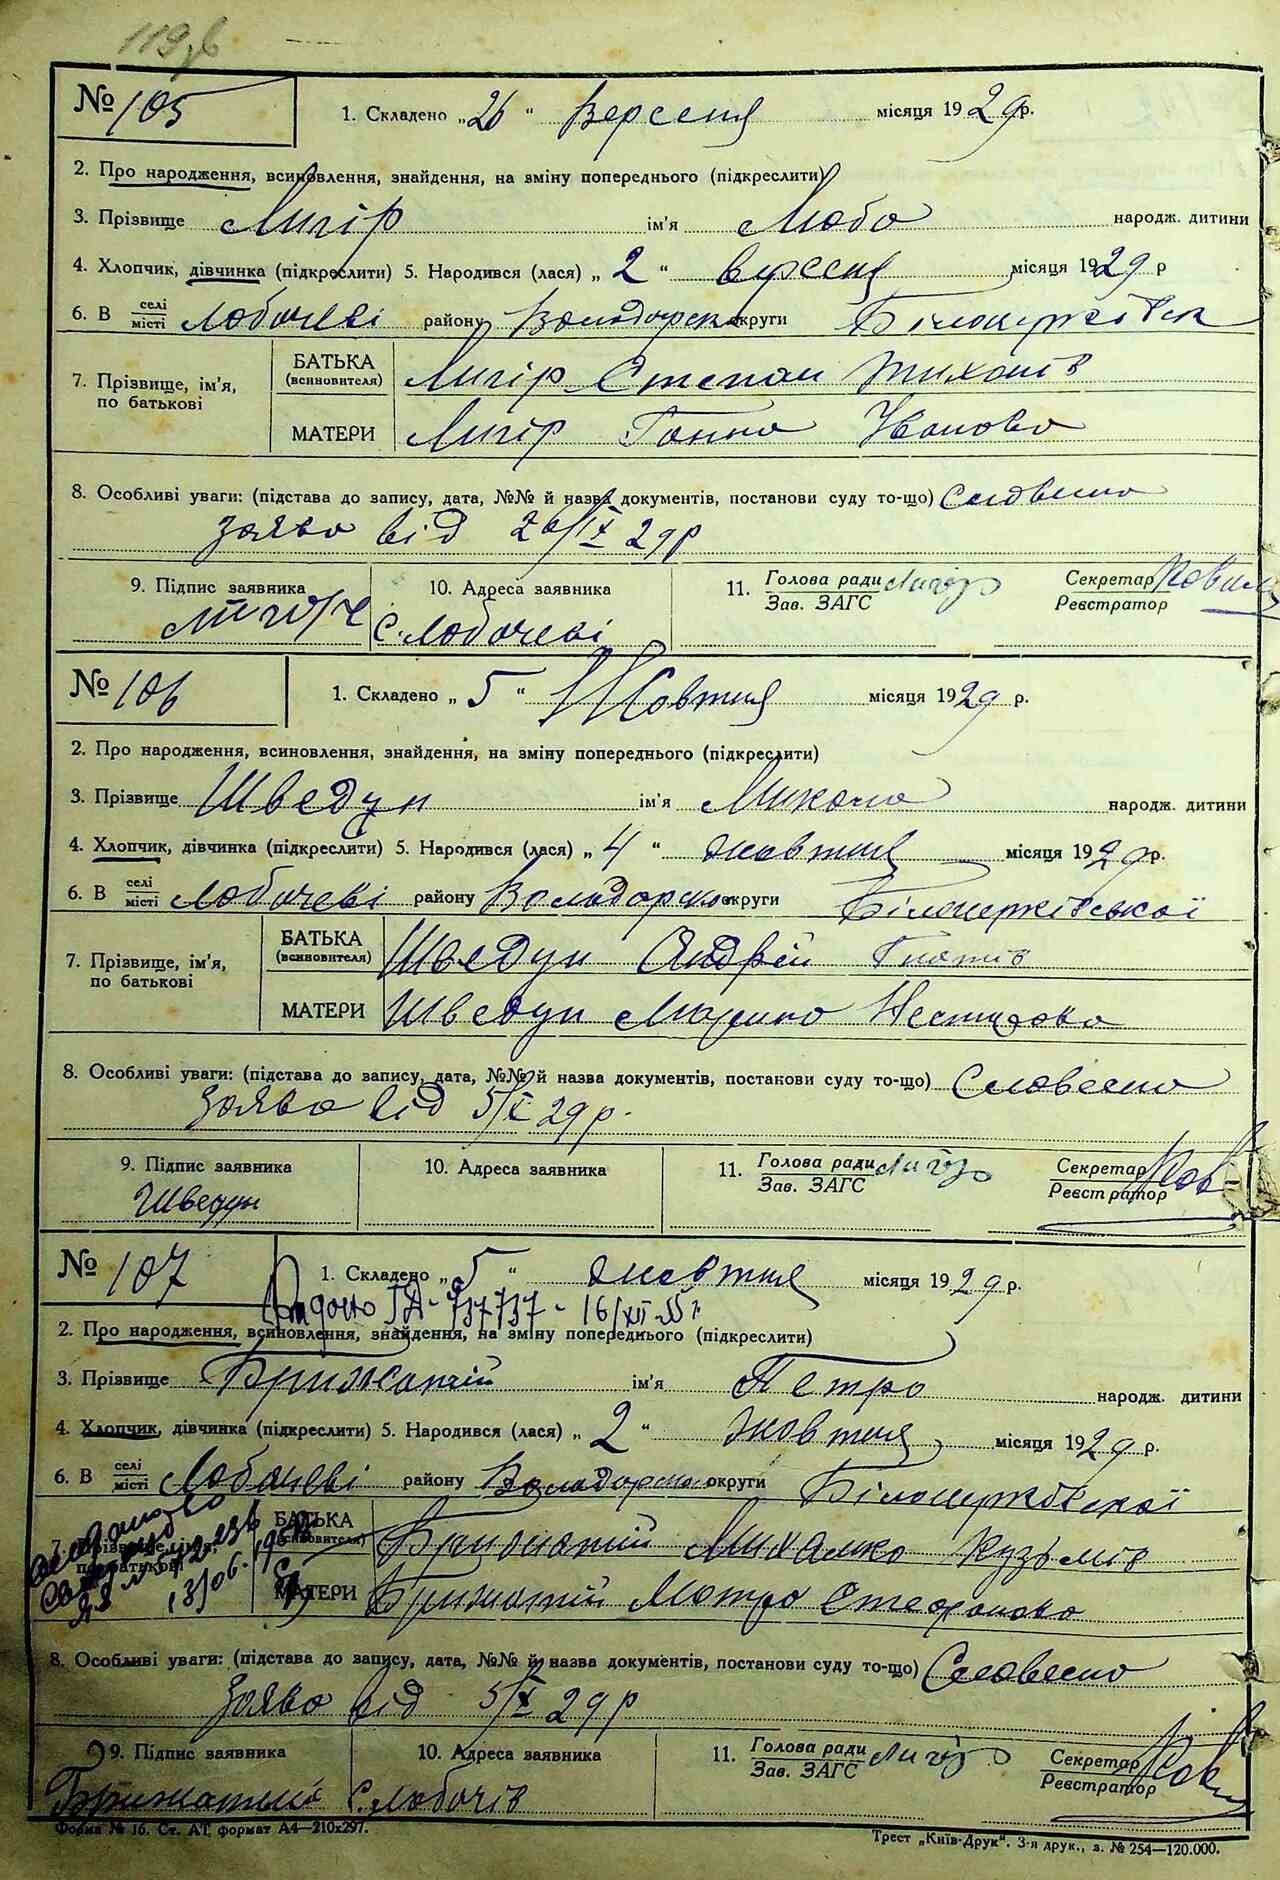 119зв
№ 105 1. Складено „26“ Вересня місяця 1929р.
2. Про народження, всиновлення, знайдення, на зміну попереднього (підкреслити)
3. Прізвище Лигір ім'я Люба народж. дитини
4. Хлопчик, дівчинка (підкреслити) 5. Народився (лася) „2“ вресня місяця 1929 р
6. В селі місті Лобачеві району Володарськ округи Білоцерківськ
7. Прізвище, ім'я, по батькові
БАТЬКА (всиновителя) Лигір Степан Тихонів
МАТЕРИ Лигір Ганна Іванова
8. Особливі уваги: (підстава до запису, дата, №№ й назва документів, постанови суду то-що) Словесна
заява від 26/IX 29р
9. Підпис заявника 10. Адреса заявника 11. Голова ради Зав. ЗАГС Лигір Секретар Реєстратор
с. Лобачеві
№ 106 1. Складено „5“ Жовтня місяця 1929 р.
2. Про народження, всиновлення, знайдення, на зміну попереднього (підкреслити)
3. Прізвище Шведун ім'я Микола народж. дитини
4. Хлопчик, дівчинка (підкреслити) 5. Народився (лася) „4“ жовтня місяця 1929р.
6. В селі місті Лобачеві району Володарсько округи Білоцерківської
7. Прізвище, ім'я, по батькові
БАТЬКА (всиновителя) Шведун Андрій Гнатів
МАТЕРИ Шведун Марина Нестерова
8. Особливі уваги: (підстава до запису, дата, №№ й назва документів, постанови суду то-що) Словесна
заява від 5/X 29р.
9. Підпис заявника 10. Адреса заявника 11. Голова ради Зав. ЗАГС Лигір Секретар Реєстратор
Шведун
№ 107 1. Складено „5“ жовтня місяця 1929 р.
737737 - 16/XII 55 г.
2. Про народження, всиновлення, знайдення, на зміну попереднього (підкреслити)
3. Прізвище Брижатий ім'я Петро народж. дитини
4. Хлопчик, дівчинка (підкреслити) 5. Народився (лася) „2“ жовтня місяця 1929 р.
6. В селі місті Лобачеві району Володарсько округи Білоцерківської
7. Прізвище, ім'я, по батькові
БАТЬКА (всиновителя) Брижатий Михалко Кузьмів
МАТЕРИ Брижатий Мотря Стефанова
8. Особливі уваги: (підстава до запису, дата, №№ й назва документів, постанови суду то-що) Словесна
заява від 5/X 29р
9. Підпис заявника 10. Адреса заявника 11. Голова ради Зав. ЗАГС Лигір Секретар Реєстратор
Брижатий с. Лобачів
Форма № 16. Ст. АТ, формат А4—210х297.
Трест „Київ-Друк“. 3-я друк., з. № 254—120.000.